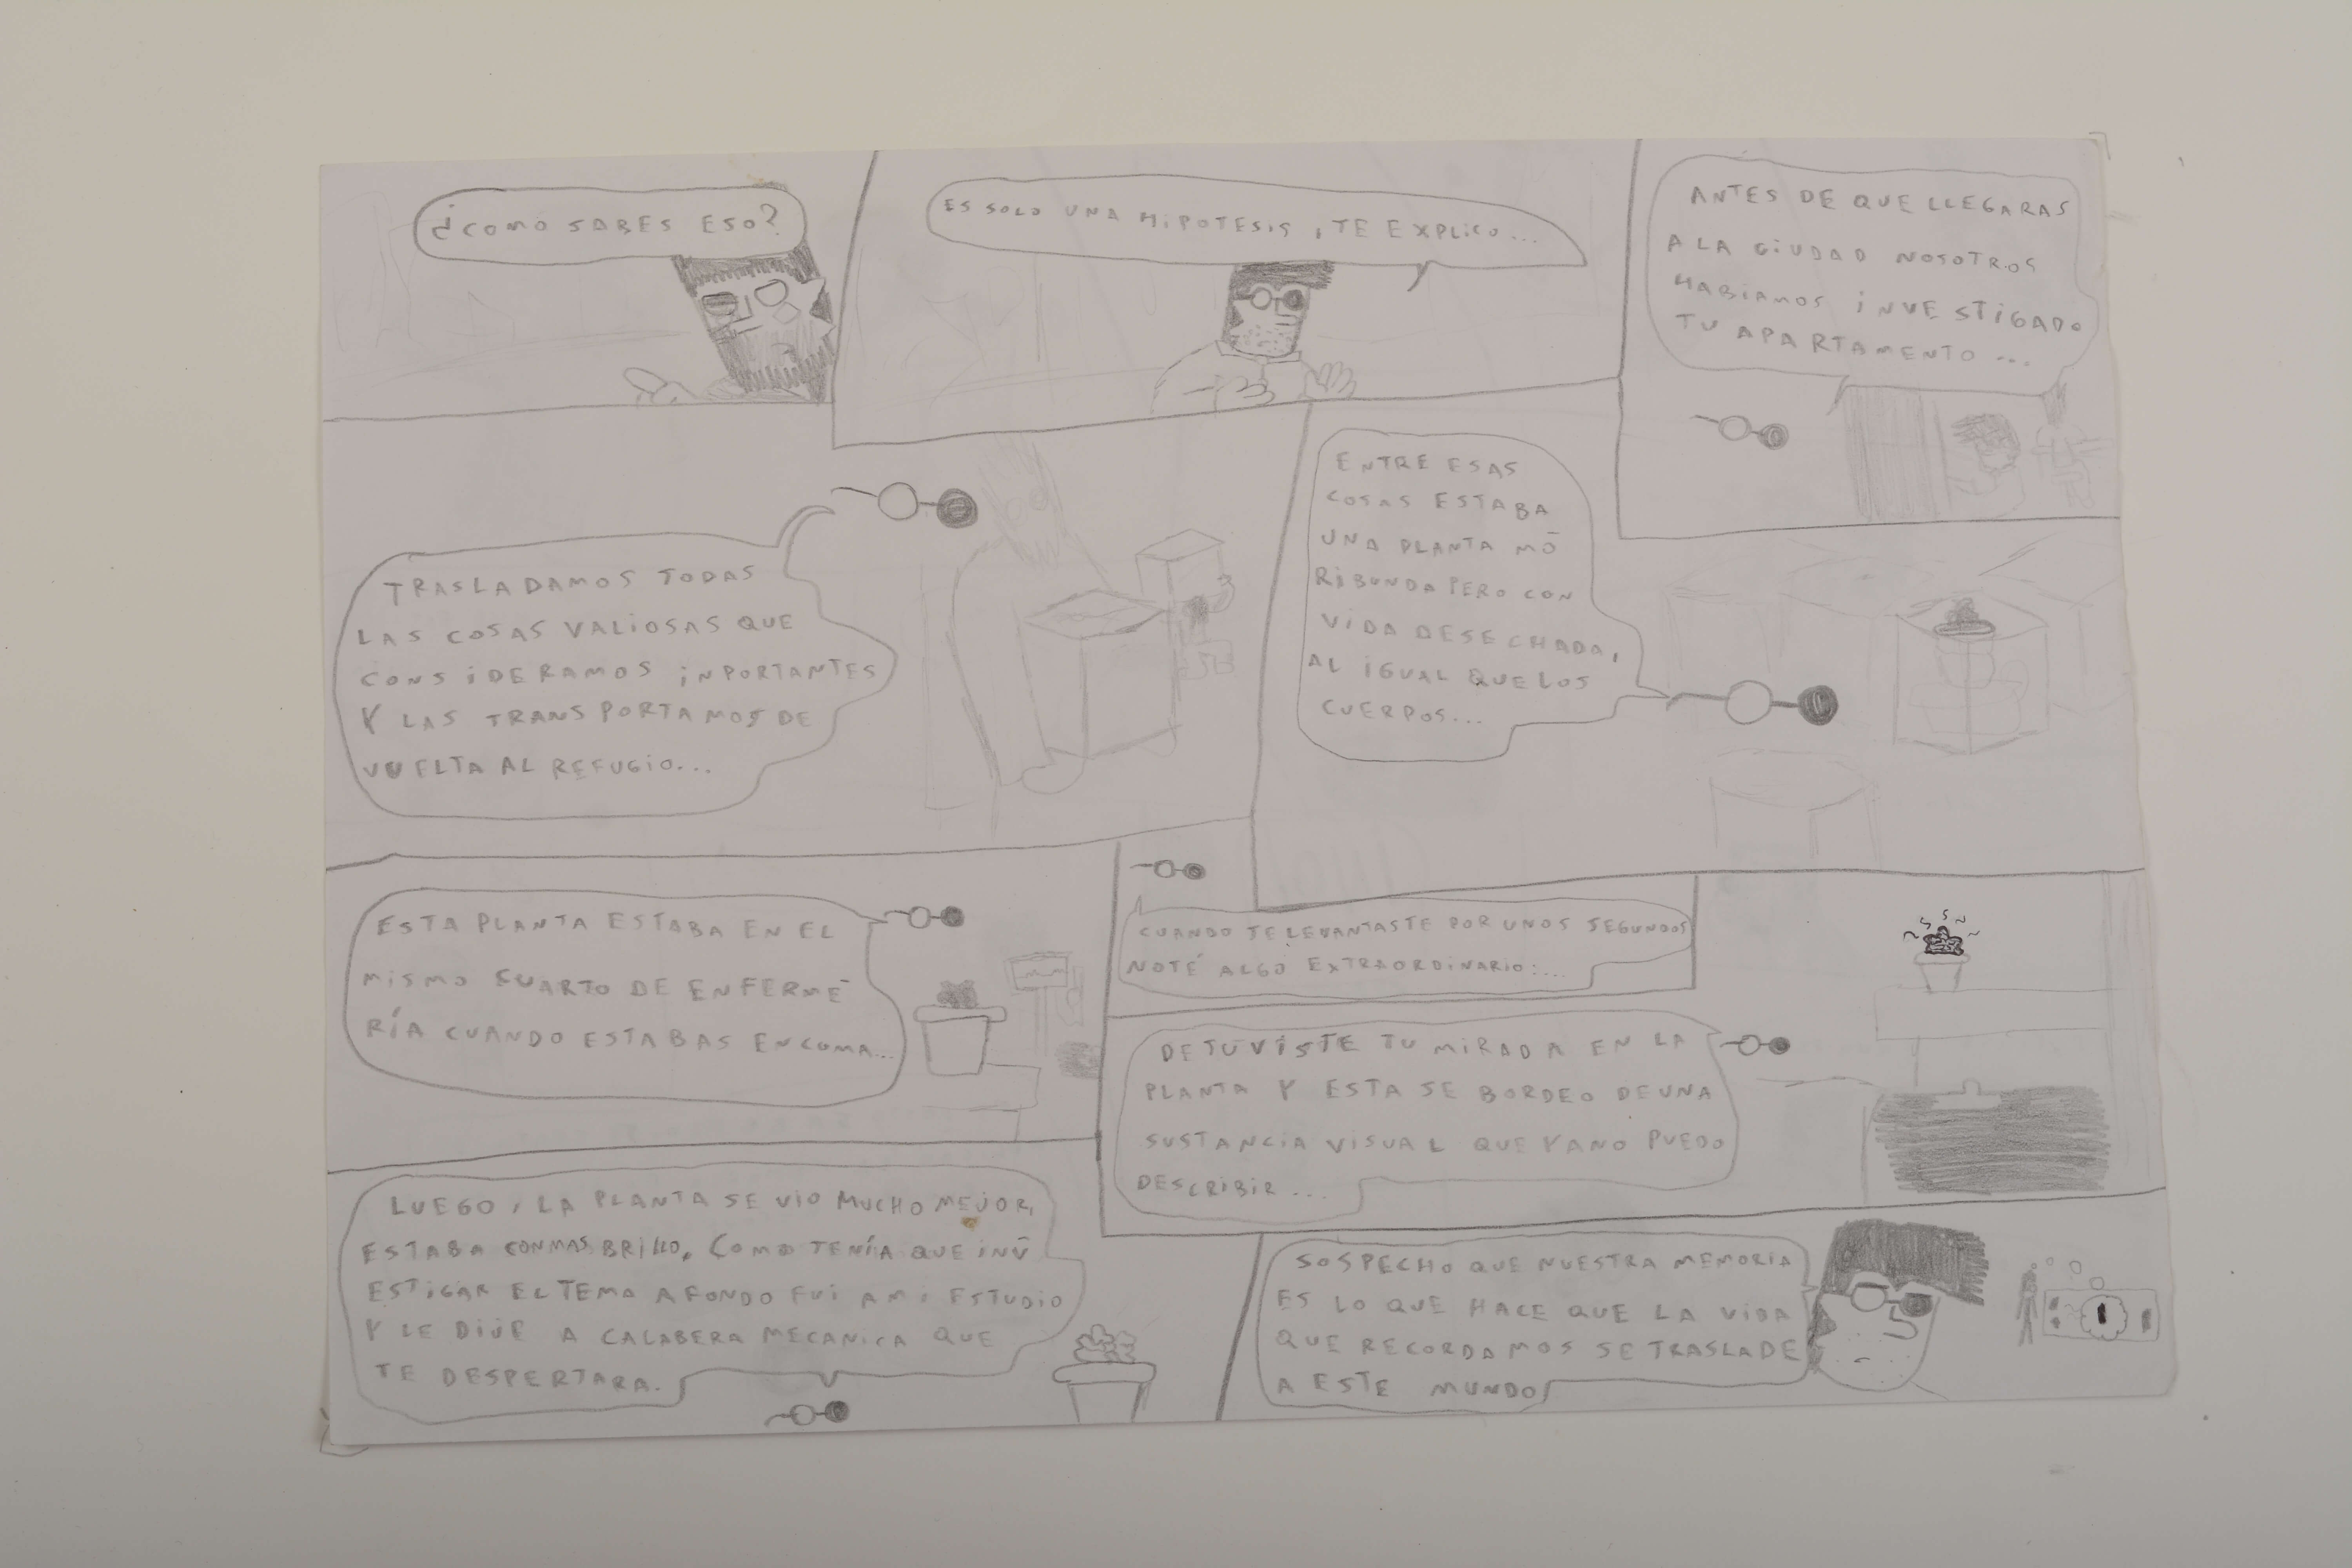 ¿COMO SABES ESO?
ES SOLO UNA HIPOTESIS, TE EXPLICO...
ANTES DE QUE LLEGARAS
A LA CIUDAD NOSOTROS
HABIAMOS INVESTIGADO
TU APARTAMENTO...
TRASLADAMOS TODAS
LAS COSAS VALIOSAS QUE
CONSIDERAMOS INPORTANTES
Y LAS TRANSPORTAMOS DE
VUELTA AL REFUGIO...
ENTRE ESAS
COSAS ESTABA
UNA PLANTA MO
RIBUNDA PERO CON
VIDA DESECHADA,
AL IGUAL QUE LOS
CUERPOS...
ESTA PLANTA ESTABA EN EL
MISMO CUARTO DE ENFERME
RÍA CUANDO ESTABAS EN COMA...
CUANDO TE LEVANTASTE POR UNOS SEGUNDOS
NOTÉ ALGO EXTRAORDINARIO:...
DETUVISTE TU MIRADA EN LA
PLANTA Y ESTA SE BORDEO DE UNA
SUSTANCIA VISUAL QUE YA NO PUEDO
DESCRIBIR...
LUEGO, LA PLANTA SE VIO MUCHO MEJOR,
ESTABA CON MAS BRILLO, COMO TENÍA QUE INV
ESTIGAR EL TEMA A FONDO FUI A MI ESTUDIO
Y LE DIJE A CALABERA MECANICA QUE
TE DESPERTARA.
SOSPECHO QUE NUESTRA MEMORIA
ES LO QUE HACE QUE LA VIDA
QUE RECORDAMOS SE TRASLADE
A ESTE MUNDO